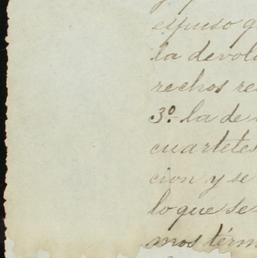 espuso q
la devol
rechos re
3º la de
cuartetes
cion y se
lo que se
mos térm